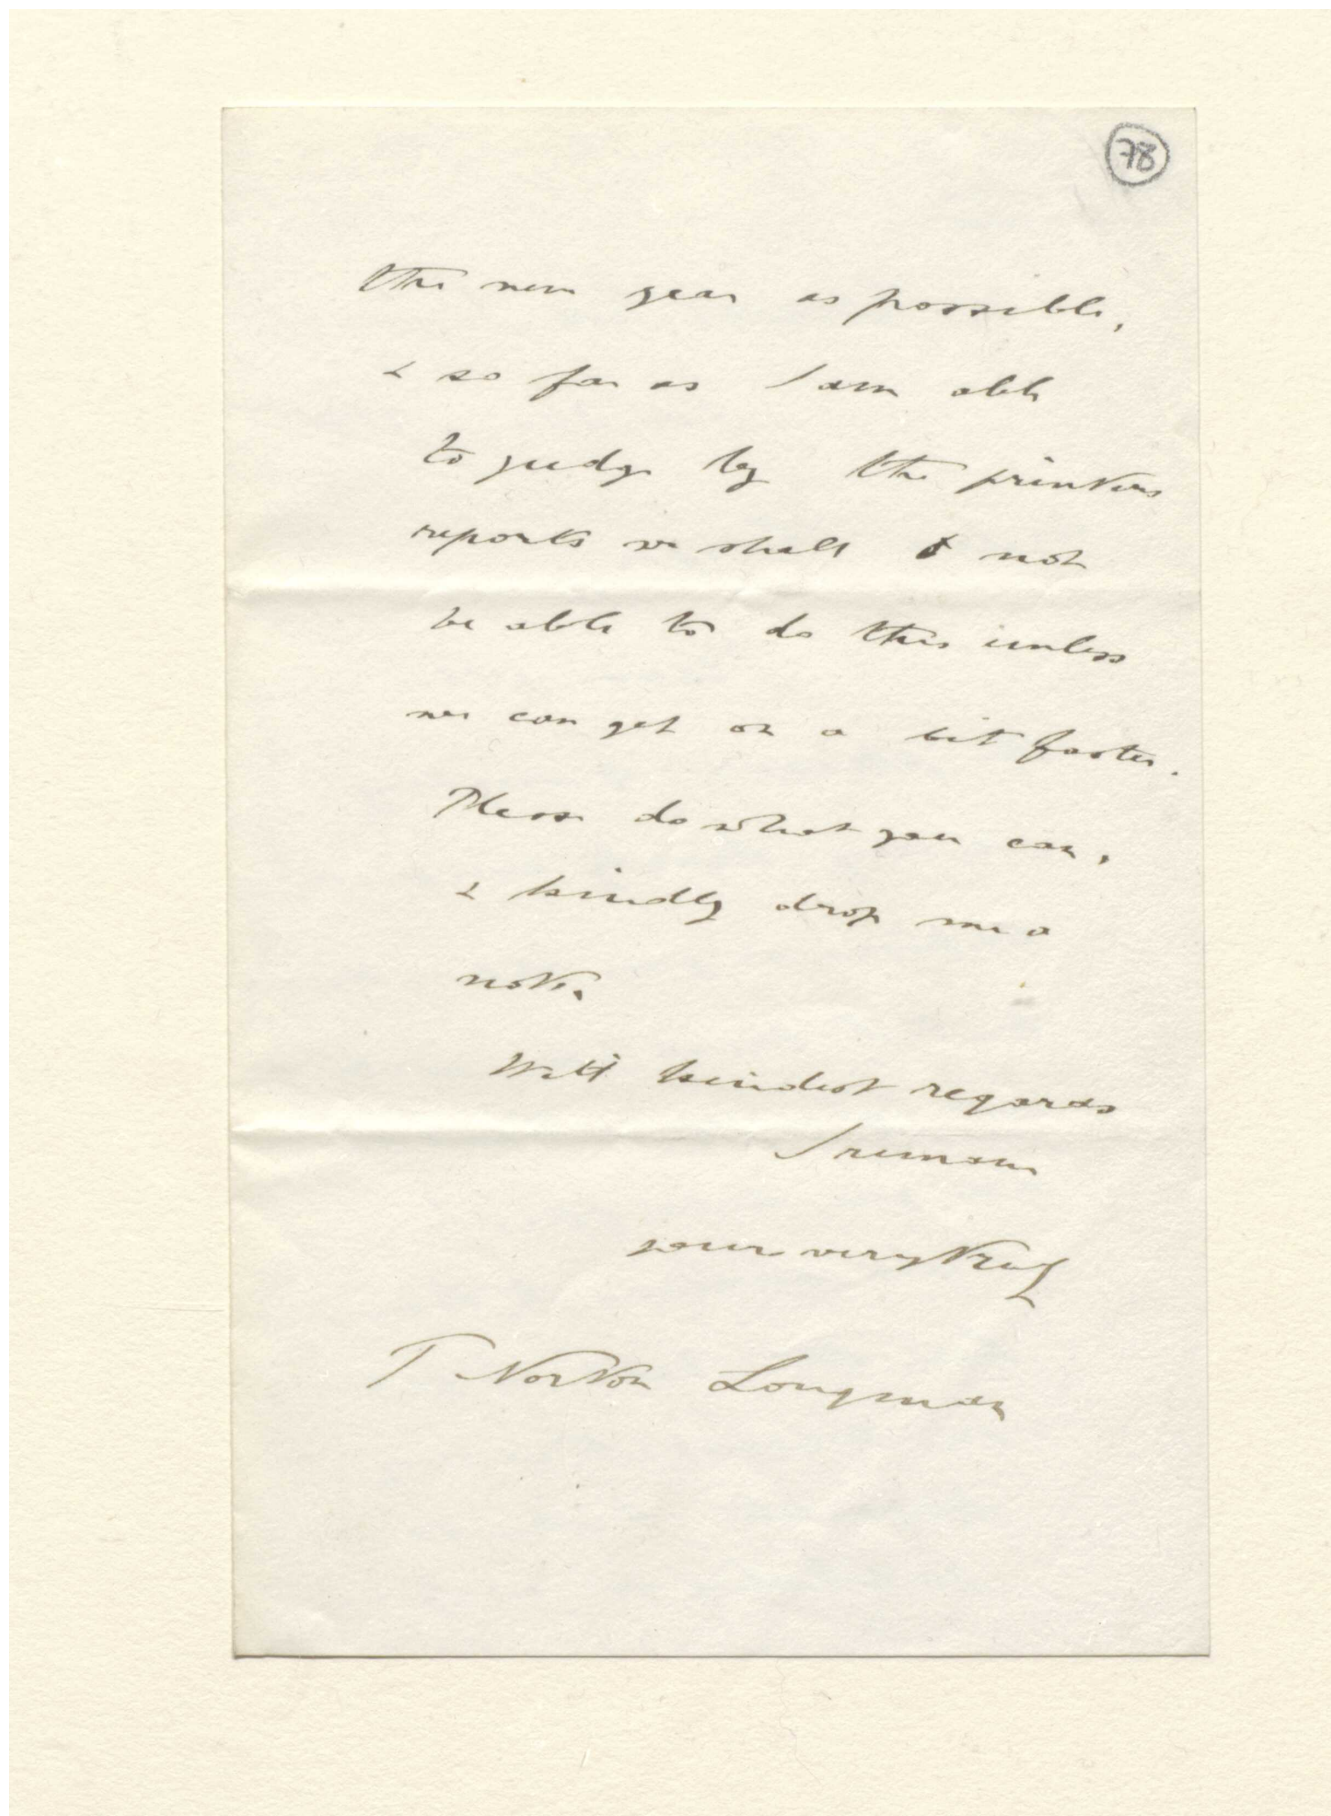 78
the new year as possible,
& so far as I am able
to judge by the printers
reports we shall not
be able to do this unless
we can get on a bit faster.
Please do what you can,
& kindly drop me a
note.
With kindest regards
I remain
yours very truly
T Norton Longman